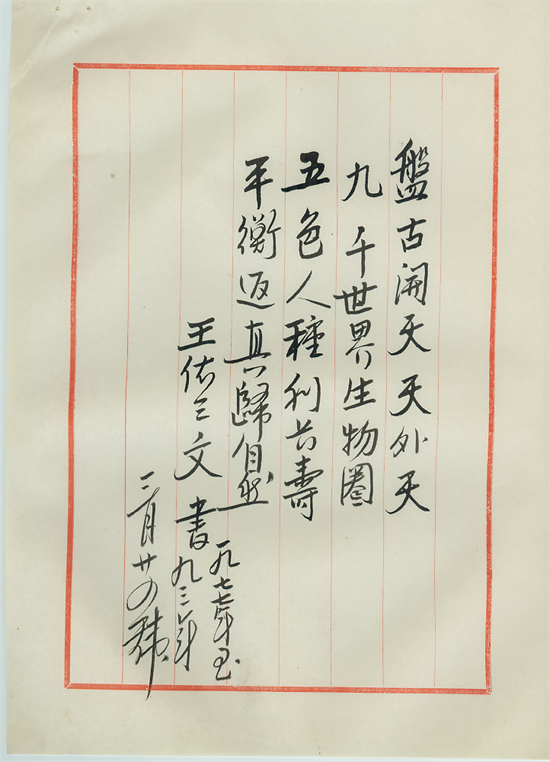 盤古開天天外天
九千世界生物圈
五色人種利长壽
平衡返真歸自然 一九七七年至
王佑三文書 九三年
三月廿四號